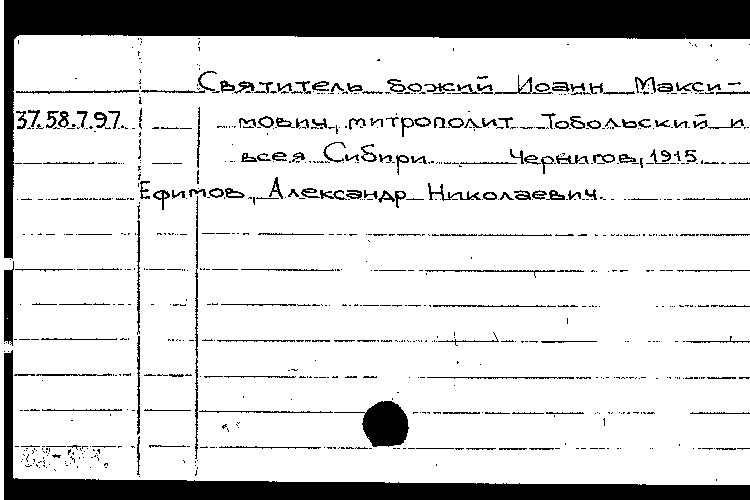 Святитель божий Иоанн Макси-
37.58.7.97. мович, митрополит Тобольский и
всея Сибири. Чернигов, 1915.
Ефимов, Александр Николаевич.